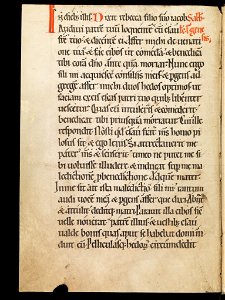 In dieb; illis. Dixit rebecca filio suo iacob. Au
diui patrem tuum loquentem cum esau
fratre tuo & dicentem ei. Affer michi de uenati
one tua & fac cibos ut comedam & benedicam
tibi coram dño antequam moriar. Nunc ergo
fili mi acquiesce consiliis meis & pergens ad
gregem affer michi duos hedos optimos ut
faciam escas patri tuo quib; libenter
uescitur. Quas cum intuleris & comederit
benedicat tibi priusquam moriatur. Cui ille
respondit. Nosti quod esau frater meus homo pi
losus sit & ego lenis. Si attrectauerit me
pater meus & senserit timeo ne putet me si
bi uoluisse illudere & inducat super me ma
ledictionem pro benedictione. Ad quem mater.
In me sit ait ista maledictio fili mi tantum
audi uocem meam & pergens affer que dixi. Abiit
& attulit deditque matri. Parauit illa cibos sicut
uelle nouerat patrem illius & uestib; esau
ualde bonis quas apud se habebat domi in
duit eum. Pelliculasque hedorum circumdedit